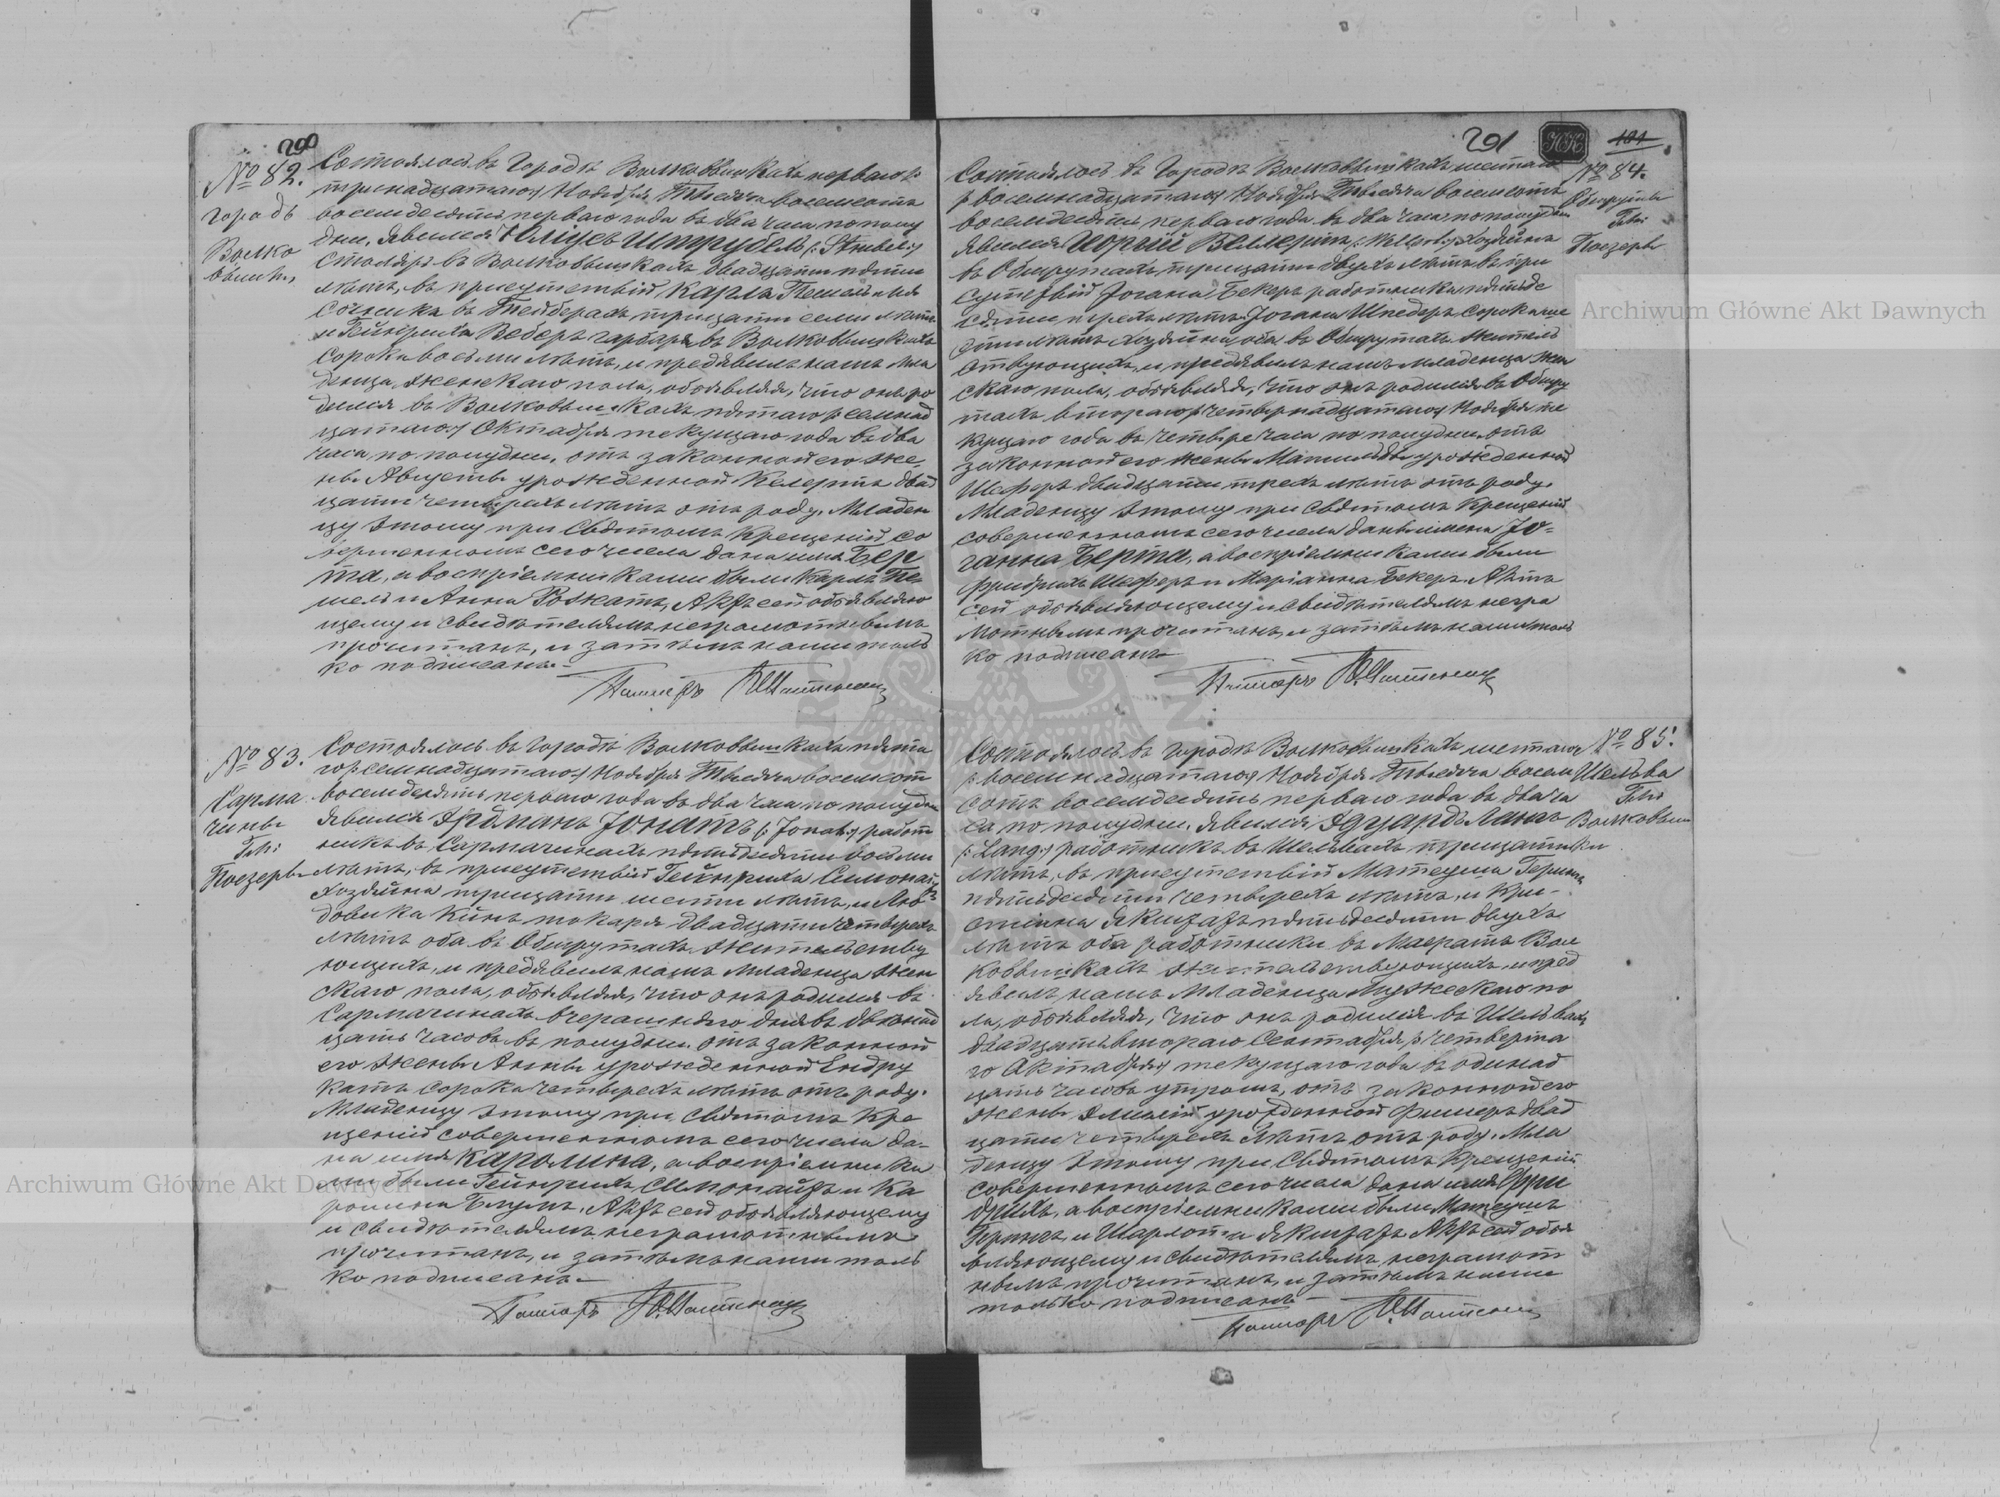 200
№ 82.
городъ
Волко
вышки
Состоялось въ городѣ Волковышкахъ перваго (:
тринадцатаго:) Ноября Тысяча восемьсотъ
восемьдесятъ перваго года въ два часа по полу
дни. Явился Юліусъ Штрубель (: Strubel :)
столяръ въ Волковышкахъ двадцати пяти
лѣтъ, въ присутствіи Карла Пешель
въ тридцати семи лѣтъ
и Гейнриха Веберъ гарбаря въ Волковышкахъ
сорока восьми лѣтъ, и предъявилъ намъ мла
денца женскаго пола, объявляя, что онъ ро
дился въ Волковышкахъ пятаго (: семнад
цатаго:) Октября текущаго года въ два
часа по полудни, отъ законной его же
ны Августы урожденной Келертъ двад
цати четырехъ лѣтъ отъ роду. Младен
цу этому при Святомъ Крещеніи со
вершенномъ сего числа дано имя Бер
та, а воспріемниками были Карлъ Пе
шель и Анна Рожатъ, Актъ сей объявляю
щему и свидѣтелямъ неграмотнымъ
прочитанъ, и затѣмъ нами толь
ко подписанъ.
Пасторъ
№ 83.
Сарма
чины
Гм:
Поезеры
Состоялось въ городѣ Волковышкахъ пята
го (: семнадцатаго:) Ноября Тысяча восемьсот
восемьдесятъ перваго года въ два часа по полудни
явился Ярманъ Іонатъ (: Jonat :) работ
никъ въ Сармачинахъ пятьдесяти восьми
лѣтъ, въ присутствіи Гейнриха Симонайтъ
хозяина тридцати шести лѣтъ, и Лю
довика Кинъ токаря двадцати четырехъ
лѣтъ оба въ Обшрутахъ жительству
ющихъ, и предъявилъ намъ младенца жен
скаго пола, объявляя, что онъ родился въ
Сармачинахъ вчерашняго дня въ двѣнад
цать часовъ въ полудни отъ законной
его жены Анны урожденной Ендру
катъ сорока четырехъ лѣтъ отъ роду.
Младенцу этому при Святомъ Кре
щеніи совершенномъ сего числа да-
но имя Каролина, а воспріемника
ми были Гейнрихъ Симонайтъ и Ка
ролина Блумъ. Актъ сей объявляющему
и свидѣтелямъ неграмотнымъ
прочитанъ, и затѣмъ нами толь
ко подписанъ.
Пасторъ
201
НК
101
№ 84.
Обшруты
Гм:
Поезеры
Состоялось въ городѣ Волковышкахъ шестаго
(: восемнадцатаго:) Ноября Тысяча восемьсотъ
восемьдесятъ перваго года въ два часа по полудни
явился Іоргий Веллертъ хозяинъ
въ Обшрутахъ тридцати двухъ лѣтъ въ при
сутствіи Іогана Бекеръ работника пятьде
сяти трехъ лѣтъ, Іогана Шнедеръ сорока ше
сти лѣтъ хозяина оба въ Обшрутахъ житель
ствующихъ, и предъявилъ намъ младенца жен
скаго пола, объявляя, что онъ родился въ Обшру
тахъ втораго (: четырнадцатаго:) Ноября те
кущаго года въ четыре часа по полудни отъ
законной его жены Матильды урожденной
Шеферъ двадцати трехъ лѣтъ отъ роду.
Младенцу этому при Святомъ Крещеніи
совершенномъ сего числа даны имена Іо-
ганна Берта, а воспріемниками были
Фридрихъ Шеферъ и Маріанна Бекеръ. Актъ
сей объявляющему и свидѣтелямъ негра
мотнымъ прочитанъ, и затѣмъ нами толь
ко подписанъ
Пасторъ
№ 85.
Шельва
Гм:
Волковыш
ки
Состоялось въ городѣ Волковышкахъ шестаго
(: восемнадцатаго:) Ноября Тысяча восемь
сотъ восемьдесятъ перваго года въ два ча
са по полудни. Явился, Эдуардъ Лангъ
(: Lang :) работникъ въ Шельвахъ тридцати
лѣтъ, въ присутствіи Матеуша Герингъ
пятьдесяти четырехъ лѣтъ, и Кри-
стіана Якштатъ пятьдесяти двухъ
лѣтъ оба работники въ Маератѣ Вол
ковышкахъ жительствующихъ, и пред
явилъ намъ младенца мужескаго по
ла, объявляя, что онъ родился въ Шельвахъ
двадцать втораго Сентября (: четверта
го Октября:) текущаго года въ одинад
цать часовъ утромъ, отъ законной его
жены Эмиліи урожденной Фишеръ двад
цати четырехъ лѣтъ отъ роду. Мла
денцу этому при Святомъ Крещеніи
совершенномъ сего числа дано имя Фри
дрихъ, а воспріемниками были Матеушъ
Герингъ и Шарлота Якштатъ Актъ сей объя
вляющему и свидѣтелямъ неграмот
нымъ прочитанъ, и затѣмъ нами
только подписанъ
Пасторъ
Archiwum Główne Akt Dawnych
Archiwum Główne Akt Dawnych